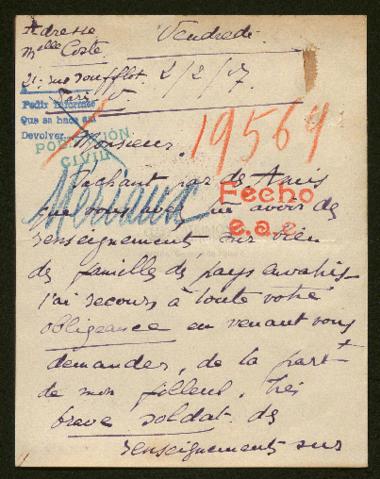 Adresse
Vendredi
Melle Coste
21 rue Soufflot 2/2/17
Paris V.
Pedir informes
Que se hace así
Devolver
POBLACIÓN
CIVIL
19564
Monsieur.
Sachant par des Amis
Fecho
e.a.e.
que vous avoir des
renseignements sur bien
des familles de pays envahis
j'ai recours à toute votre
obligeance en venant vous
demander, de la part
de mon filleul, très
brave soldat. des
renseignements sur